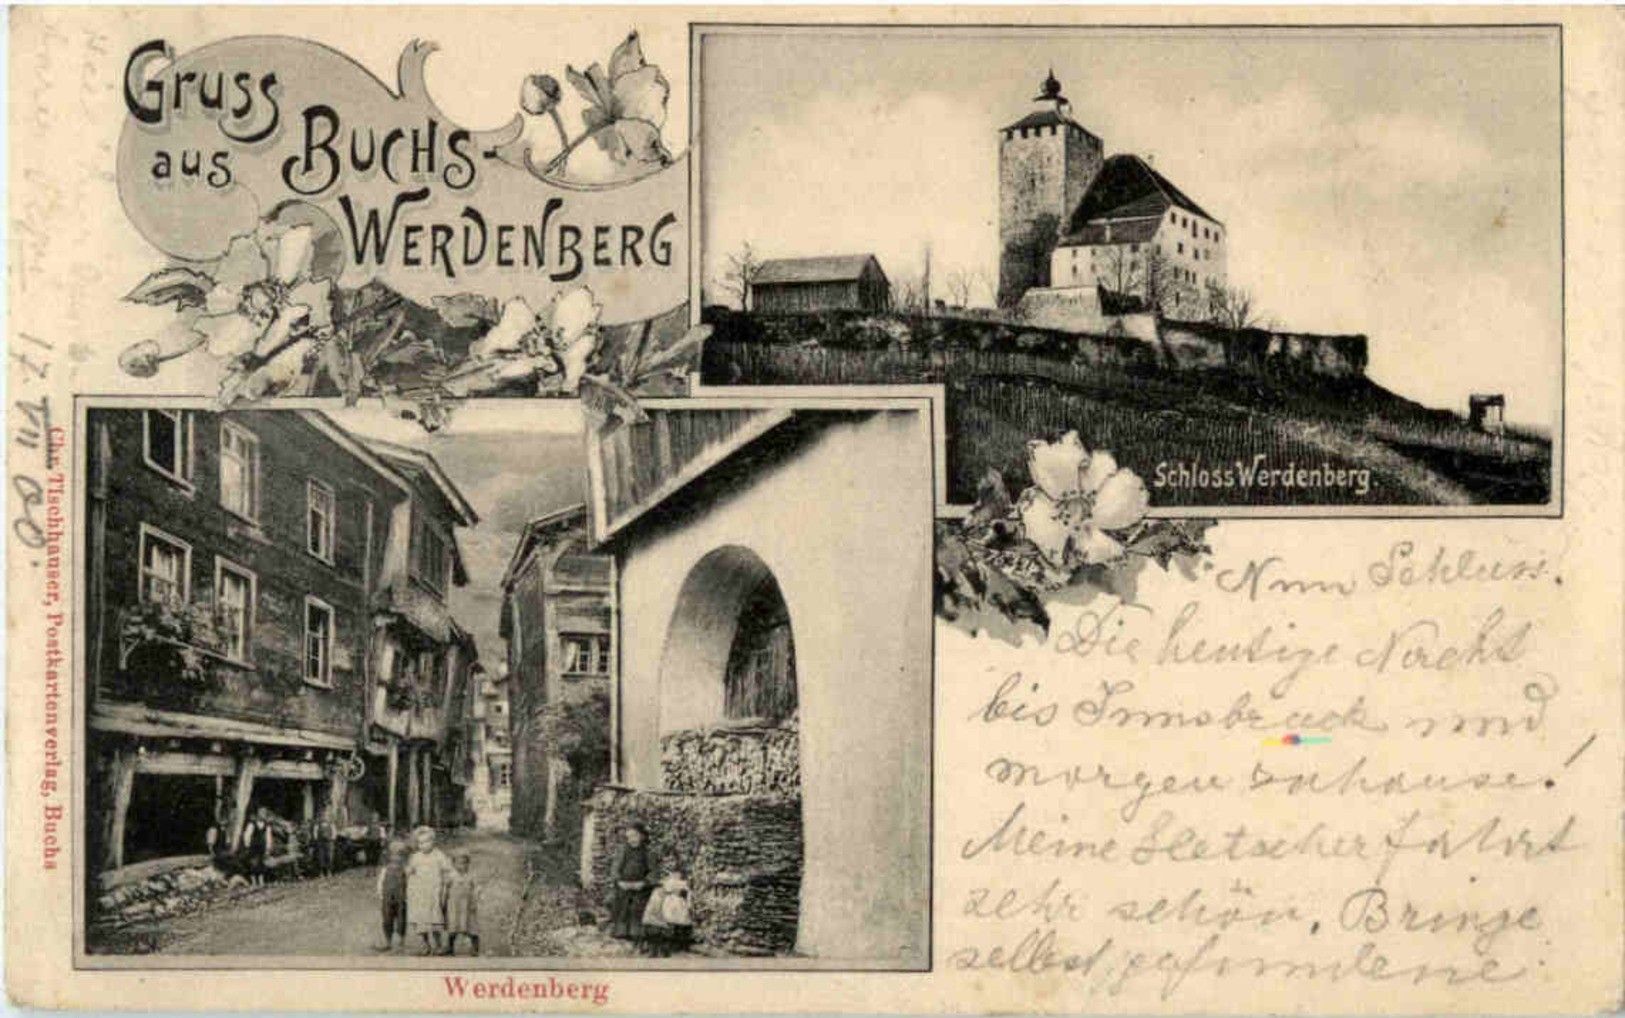 Gruss
aus BUCHS-
WERDENBERG
Schloss Werdenberg.
Nun Schluss.
Die heutige Nacht
bis Innsbruck und
morgen zuhause!
Meine Gletscherfahrt
sehr schön. Bringe
selbst gefundene
Werdenberg
Chr. Tischhauser, Postkartenverlag, Buchs
17. VII 00.